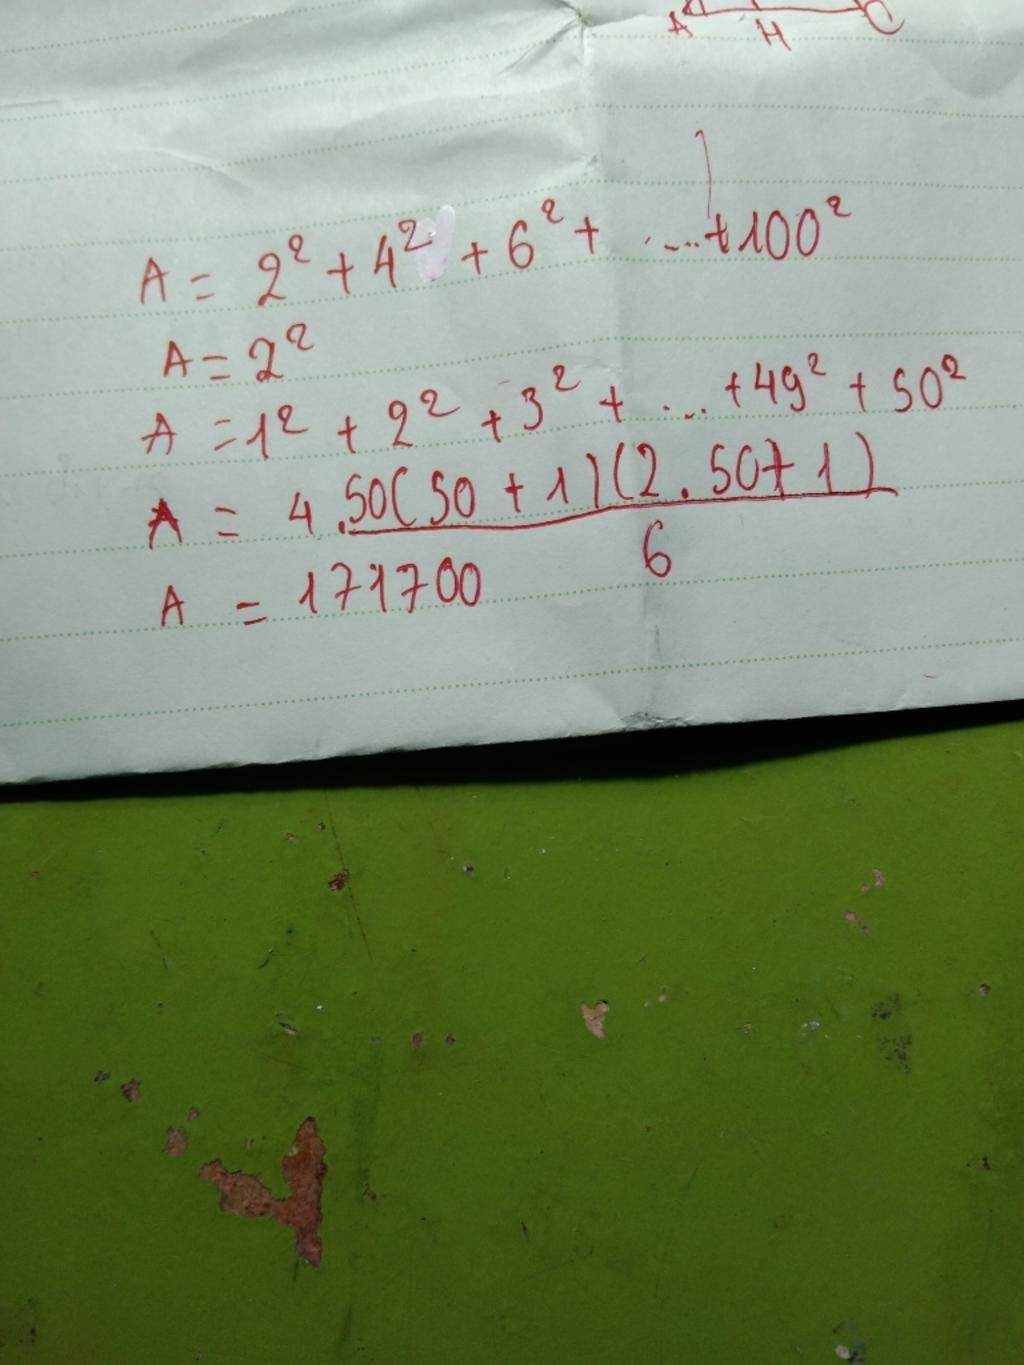 A H C
A = 2² + 4² + 6² + ....+100²
A = 2²
A = 1² + 2² + 3² + ... +49² + 50²
A = 4.50(50 + 1)(2.50+1)
6
A = 171700